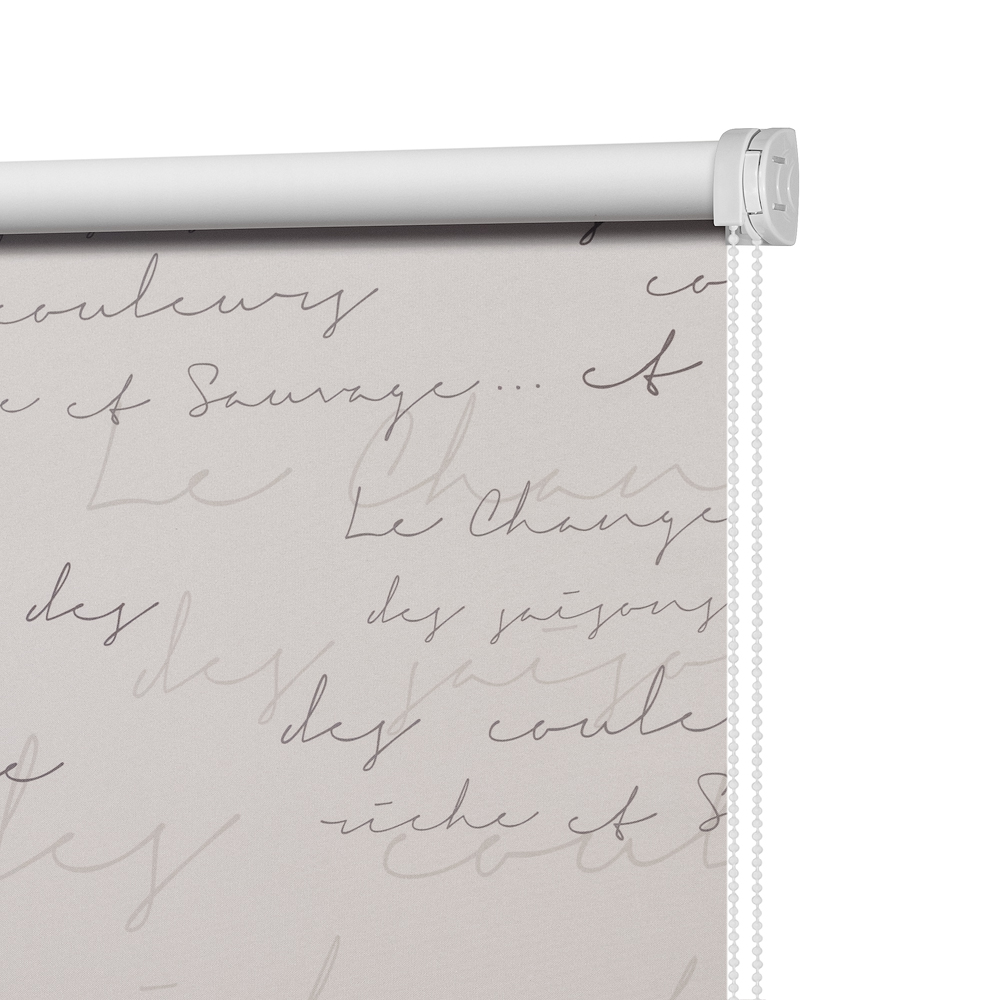 couleurs co
e et Sauvage... et
Le Chan
Le Change
des des saisons
des saiso
des coule
e
riche et S
des coul